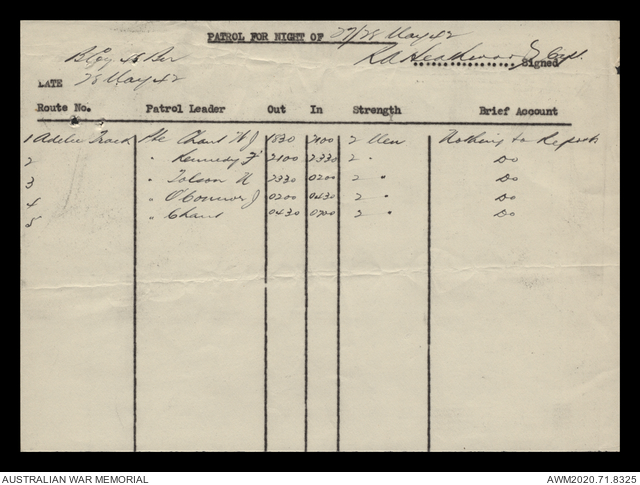 PATROL FOR NIGHT OF 27/28 May 42
B Coy 48 Bn
Signed Capt.
DATE 28 May 42
Route No. Patrol Leader Out In Strength Brief Account
1 Track Pte Chant W J 1830 2100 2 Men Nothing to Report
2 " Kennedy F 2100 2330 2 " Do
3 " Tolson N 2330 0200 2 " Do
4 " O'Connor J 0200 0430 2 " Do
5 " Chant 0430 0700 2 " Do
AUSTRALIAN WAR MEMORIAL AWM2020.71.8325